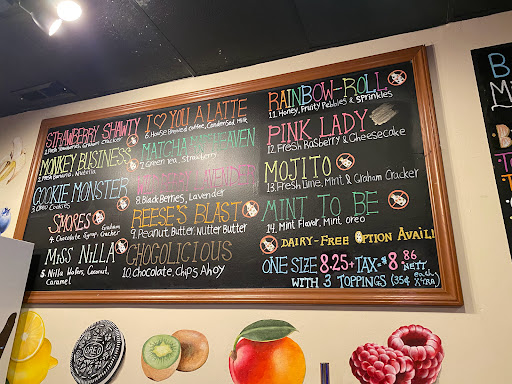 STRAWBERRY SHAWTY
1. Fresh Strawberries, Graham Cracker
MONKEY BUSINESS
2. Fresh Bananas, Nutella
COOKIE MONSTER
3. OREO Cookies
S'MORES
4. Chocolate Syrup, Graham Cracker
MISS NILLA
5. Nilla Wafers, Coconut,
Caramel
I ♡ YOU A LATTE
6. House Brewed Coffee, Condensed Milk
MATCHA HEAVEN
7. Green tea, Strawberry
8. BlackBerries, Lavender
REESE'S BLAST
9. Peanut Butter, Nutter Butter
CHOCOLICIOUS
10. Chocolate, Chips Ahoy
RAINBOW-ROLL
11. Honey, Fruity Pebbles & Sprinkles
PINK LADY
12. Fresh Rasberry & Cheesecake
MOJITO
13. Fresh Lime, Mint & Graham Cracker
MINT TO BE
14. Mint Flavor, Mint Oreo
DAIRY-FREE OPTION AVAIL
ONE SIZE 8.25+TAX=$8.86
NETT
WITH 3 TOPPINGS (35¢ each XTRA)
OREO